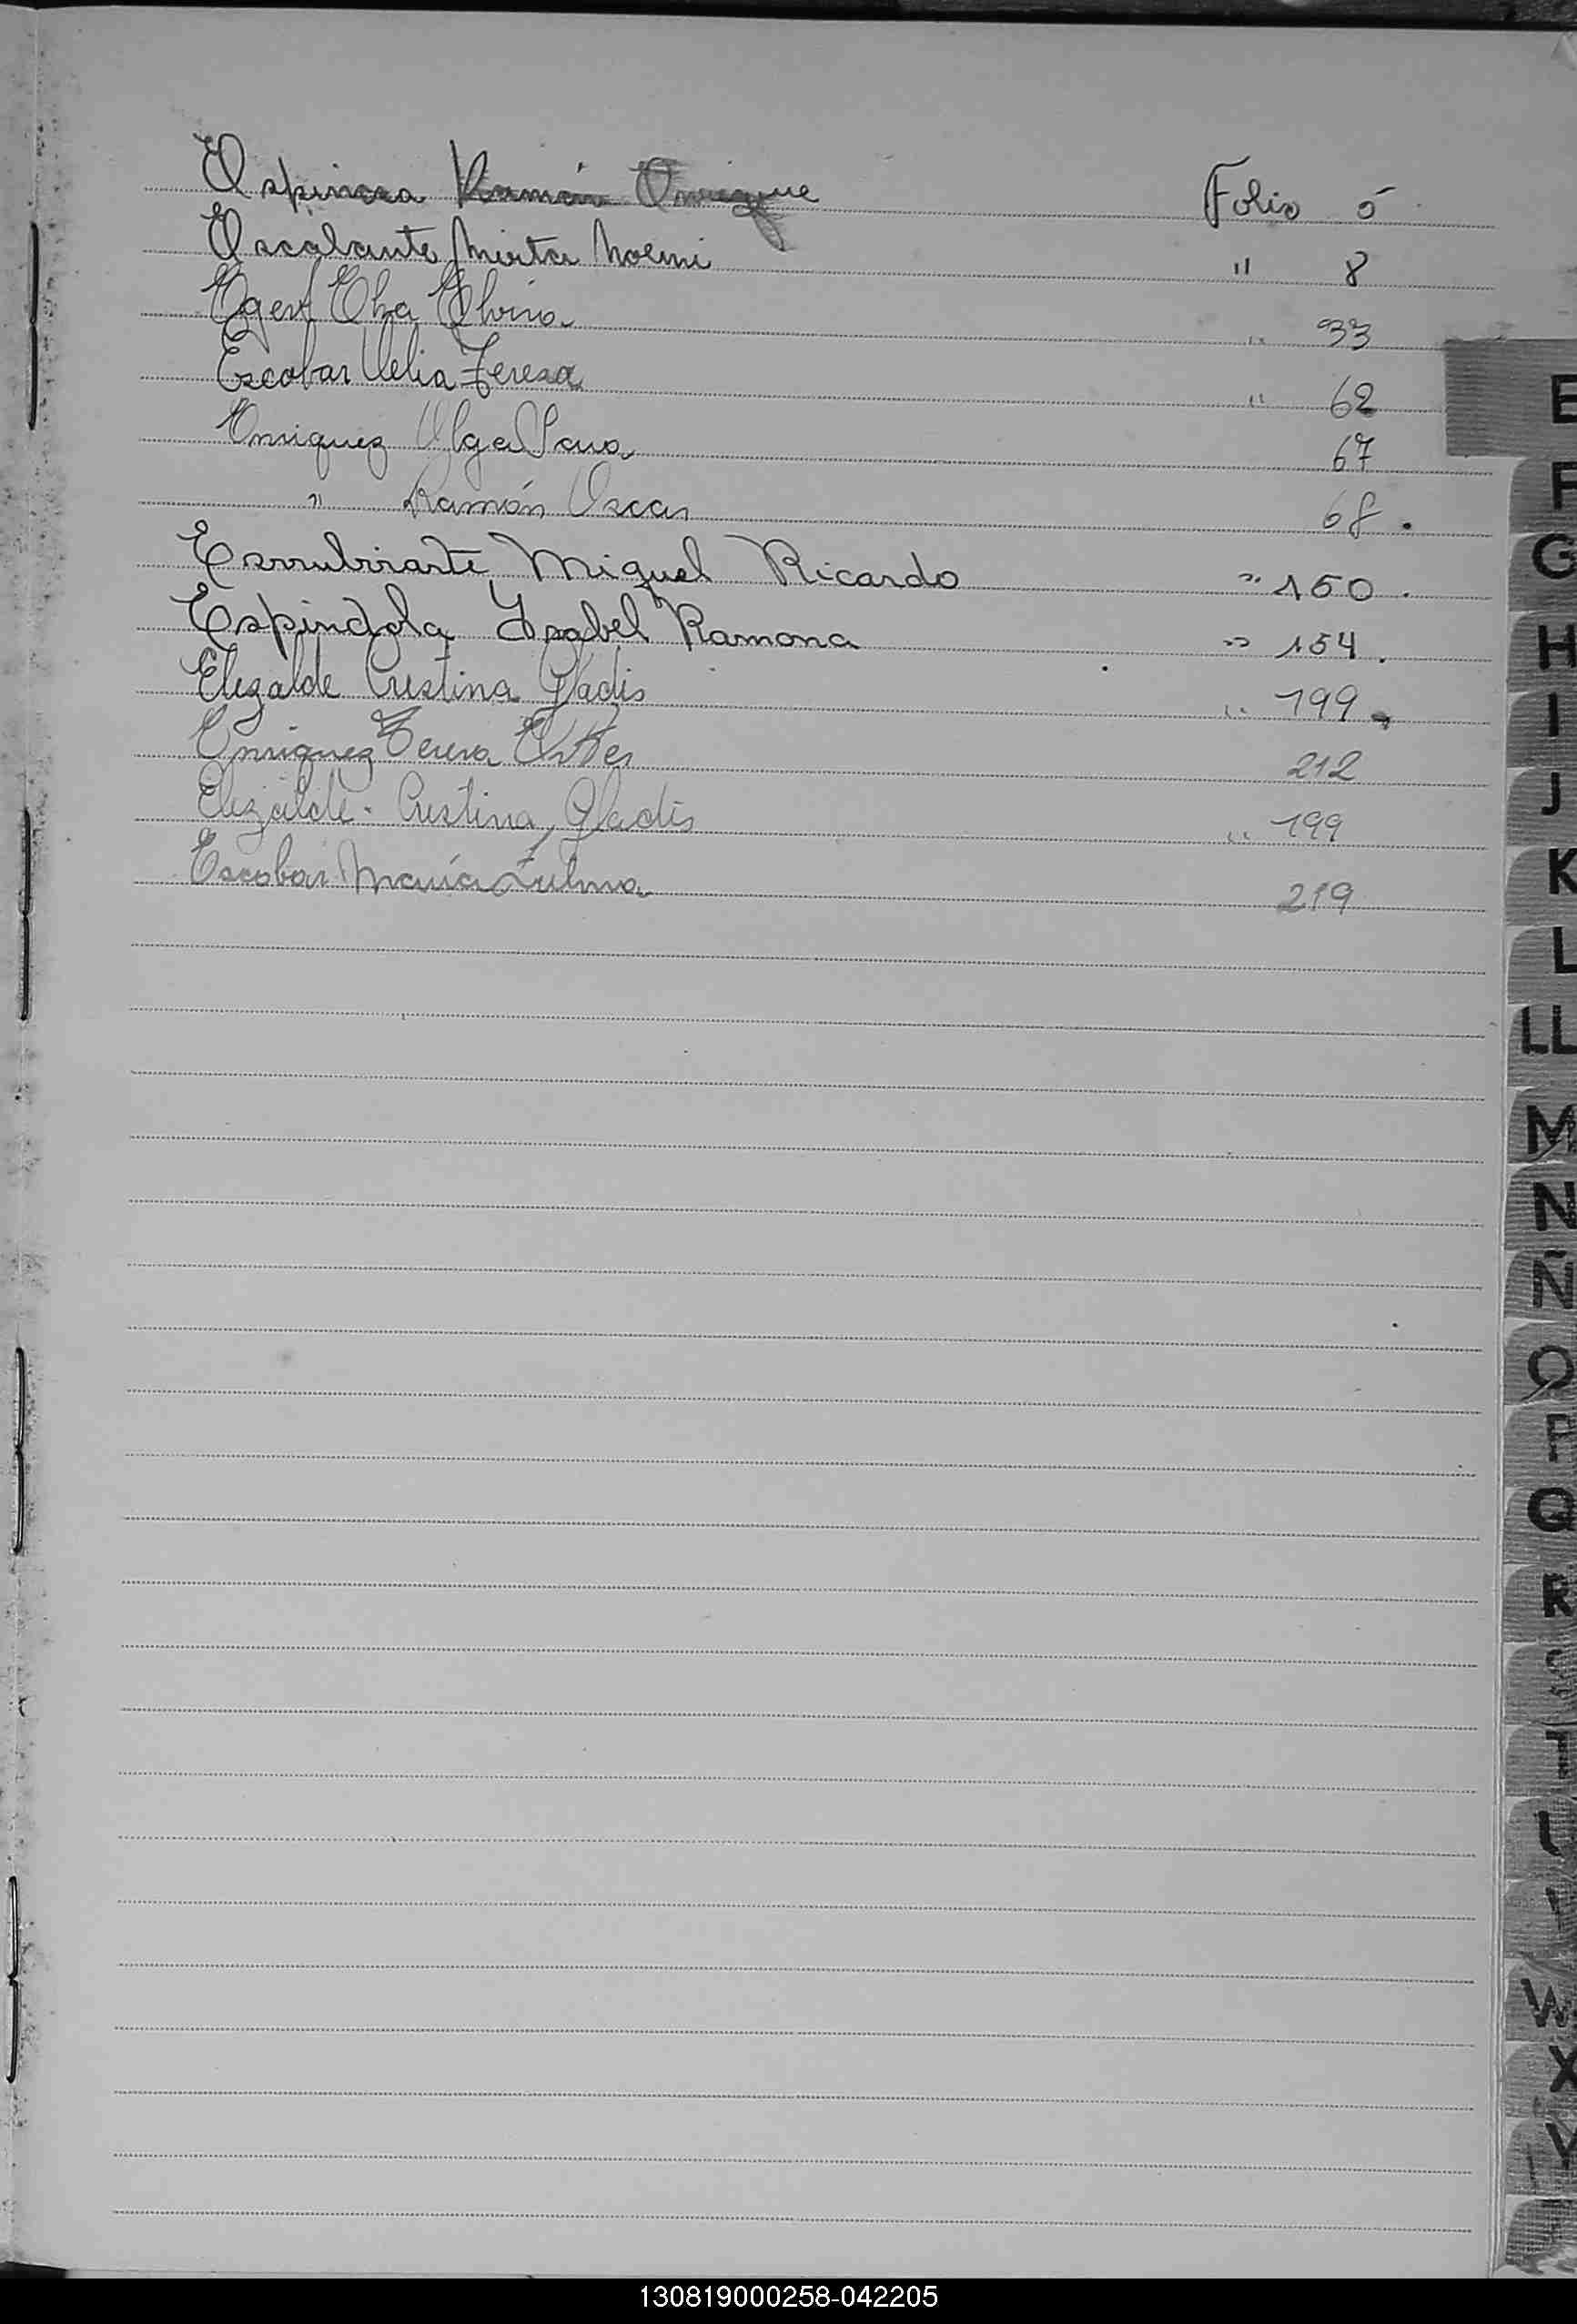 Espinoza Ramón Enrique Folio 5
Escalante Mirta Noemi " 8
Egert Elsa Elvira " 33
Escobar Celia Teresa " 62
Enriquez Olga Sara 67
" Ramón Oscar 68.
Errubirarte Miguel Ricardo " 150.
Espindola Ysabel Ramona " 154.
Elizalde Cristina Gladis " 199
Enriquez Teresa Ester 212
Elizalde - Cristina, Gladis " 199
Escobar María Zulma 219
E
F
G
H
I
J
K
L
LL
M
N
Ñ
O
P
Q
R
S
T
U
W
X
Y
130819000258-042205